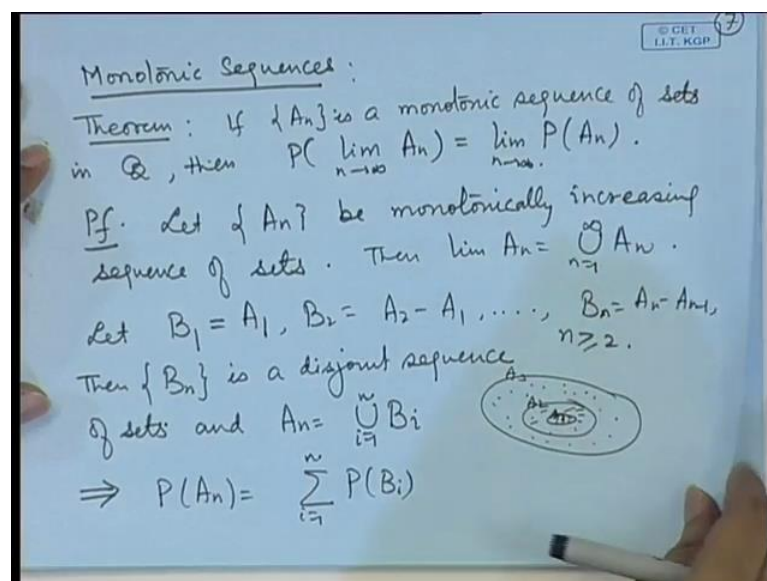 © CET
I.I.T. KGP
7
Monotonic Sequences :
Theorem : If {An} is a monotonic sequence of sets
in Q, then P( lim n→∞ An) = lim n→∞. P(An).
Pf. Let {An} be monotonically increasing
sequence of sets. Then lim An = ∞ ∪ n=1 An.
Let B1 = A1, B2 = A2 - A1, ....., Bn = An - An-1,
n ≥ 2.
Then {Bn} is a disjoint sequence
of sets and An = n ∪ i=1 Bi
A3
A2
A1
⇒ P(An) = n ∑ i=1 P(Bi)